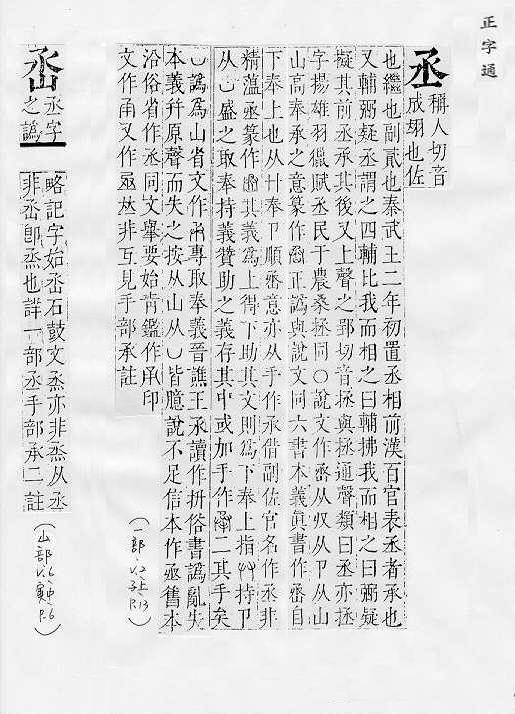 正字通
丞
稱人切音
成翊也佐
也繼也副貳也秦武王二年初置丞相前漢百官表丞者承也
又輔弼疑丞謂之四輔比我而相之曰輔拂我而相之曰弼疑
擬其前丞承其後又上聲之郢切音拯與拯通聲類曰丞亦拯
字揚雄羽獵賦丞民于農桑拯同○說文作丞从収从卩从山
山高奉承之意篆作 正譌與說文同六書本義眞書作 自
下奉上也从廾奉卩順丞意亦从手作承借副佐官名作丞非
精薀丞篆作 其義爲上得下助其文則爲下奉上指 持卩
从 盛之取奉持義贊助之義存其中或加手作 二其手矣
譌爲山省文作 專取奉義晉譙王承讀作拼俗書譌亂失
本義幷原聲而失之按从山从 皆臆說不足信本作丞舊本
沿俗省作丞同文舉要始肯鑑作 印
文作 又作 非互見手部承註
一部 以子上 P.13
丞字
之譌
略記字始 石鼓文烝亦非烝从丞
非 卽烝也詳一部丞手部承二註
山部 寅中 P.6